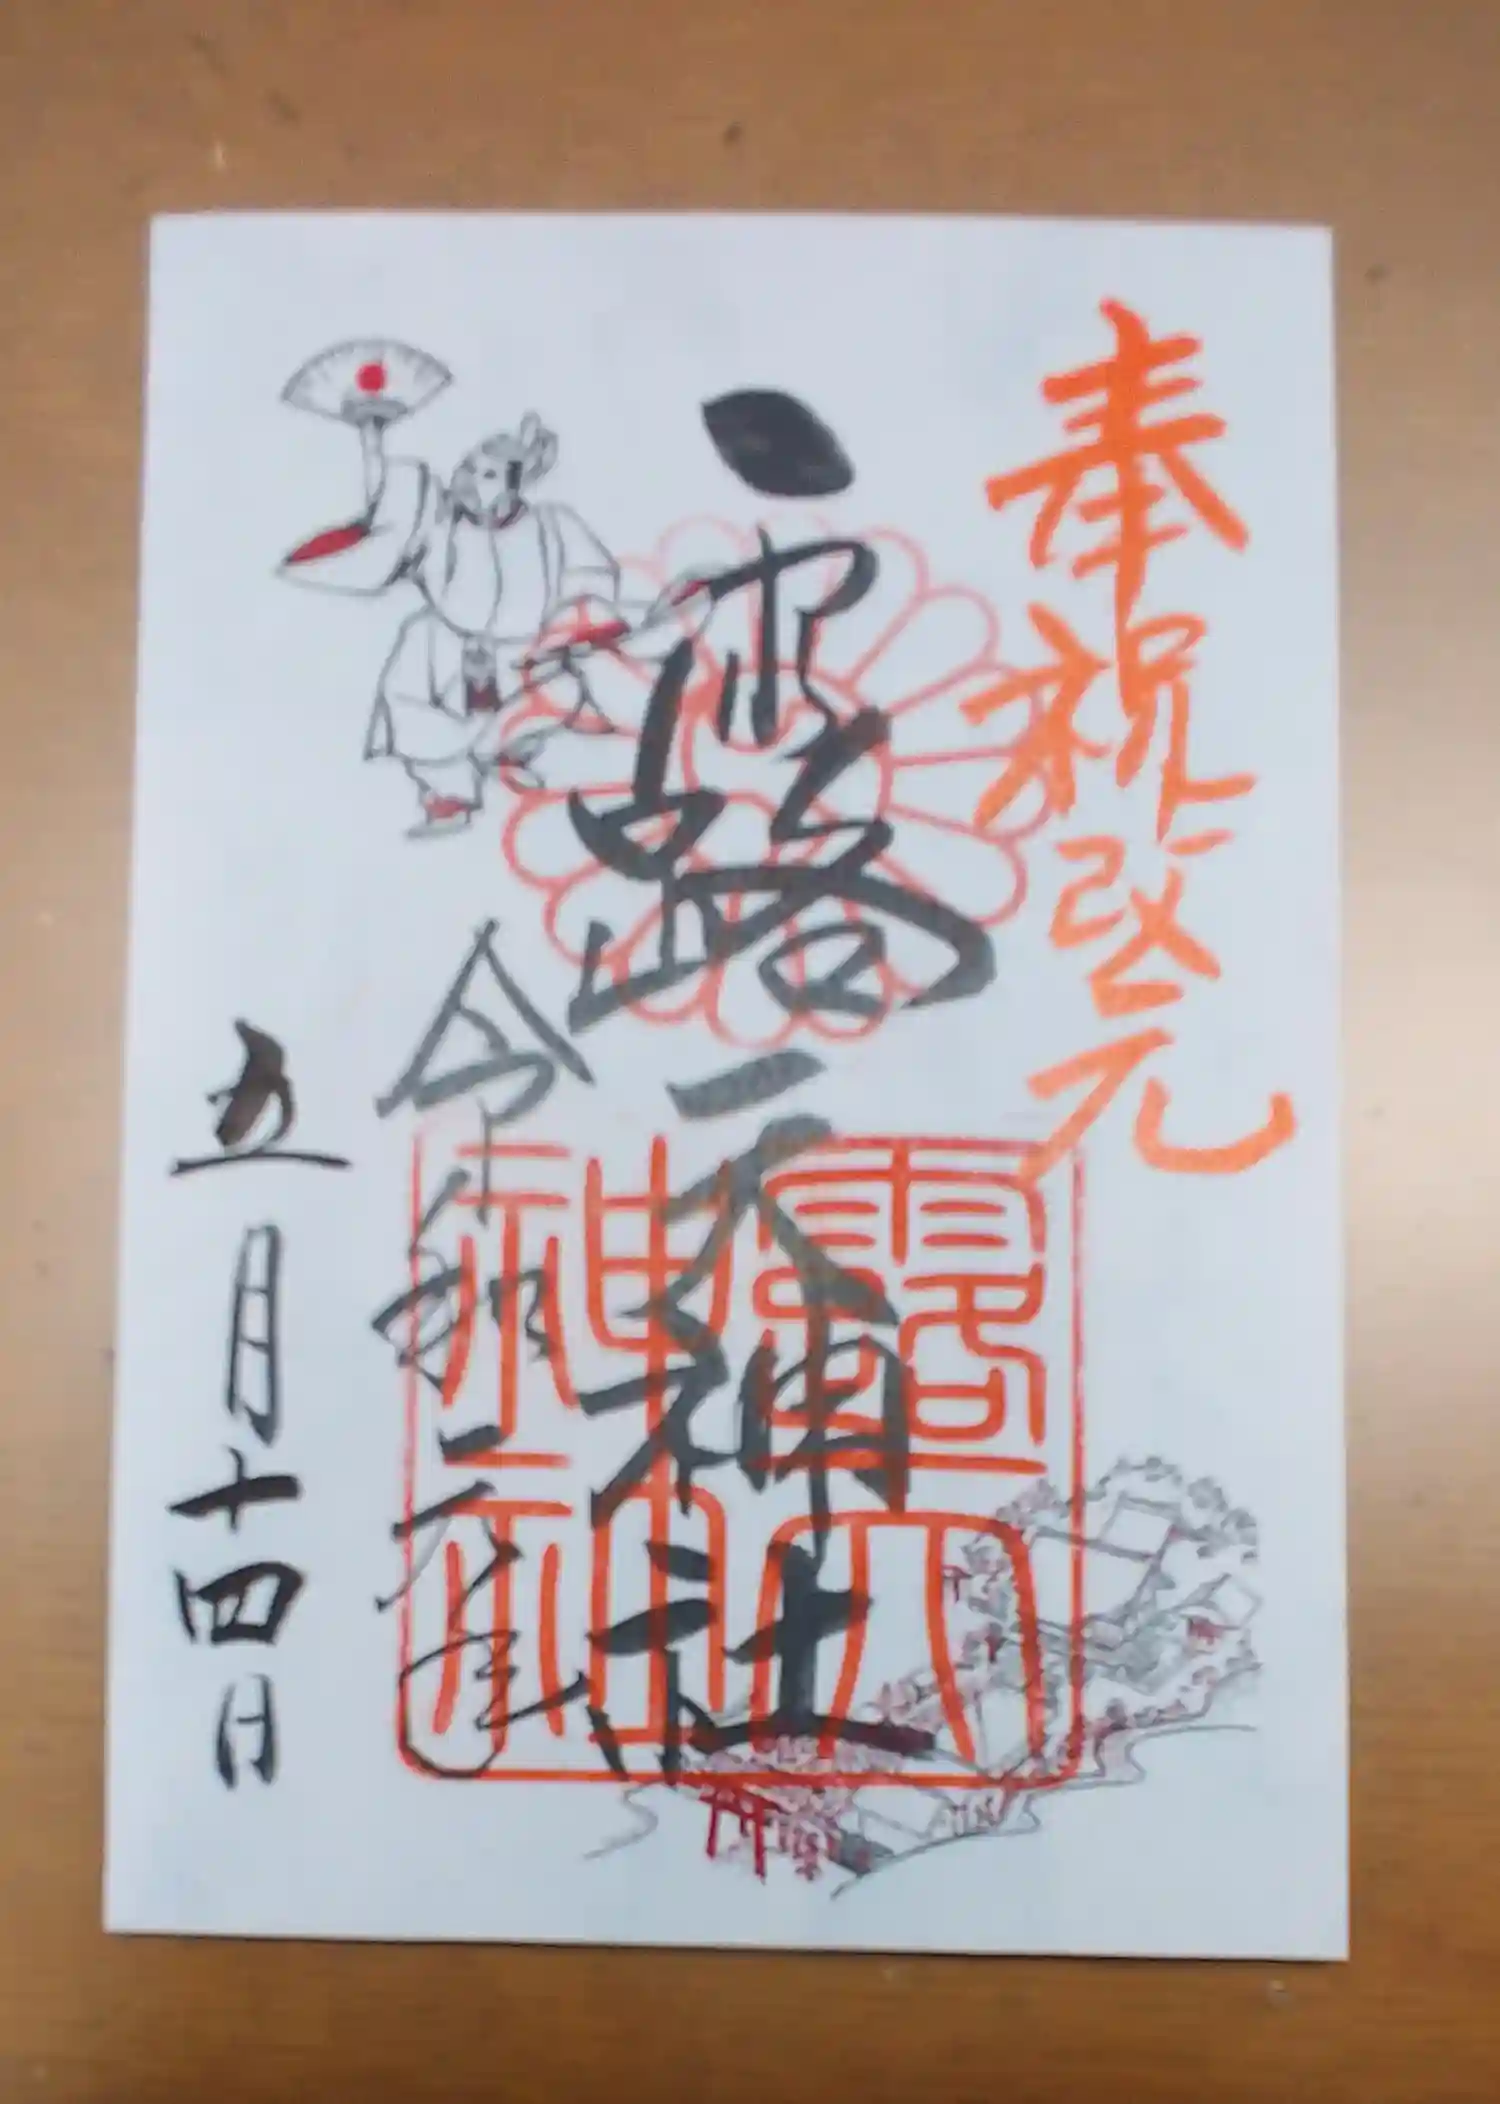 奉祝改元
露天神社
露天神社
令和元年
五月十四日